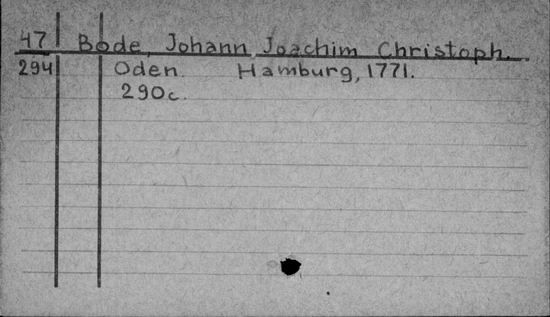 47 Bode, Johann Joachim Christoph.
294 Oden. Hamburg, 1771.
290c.